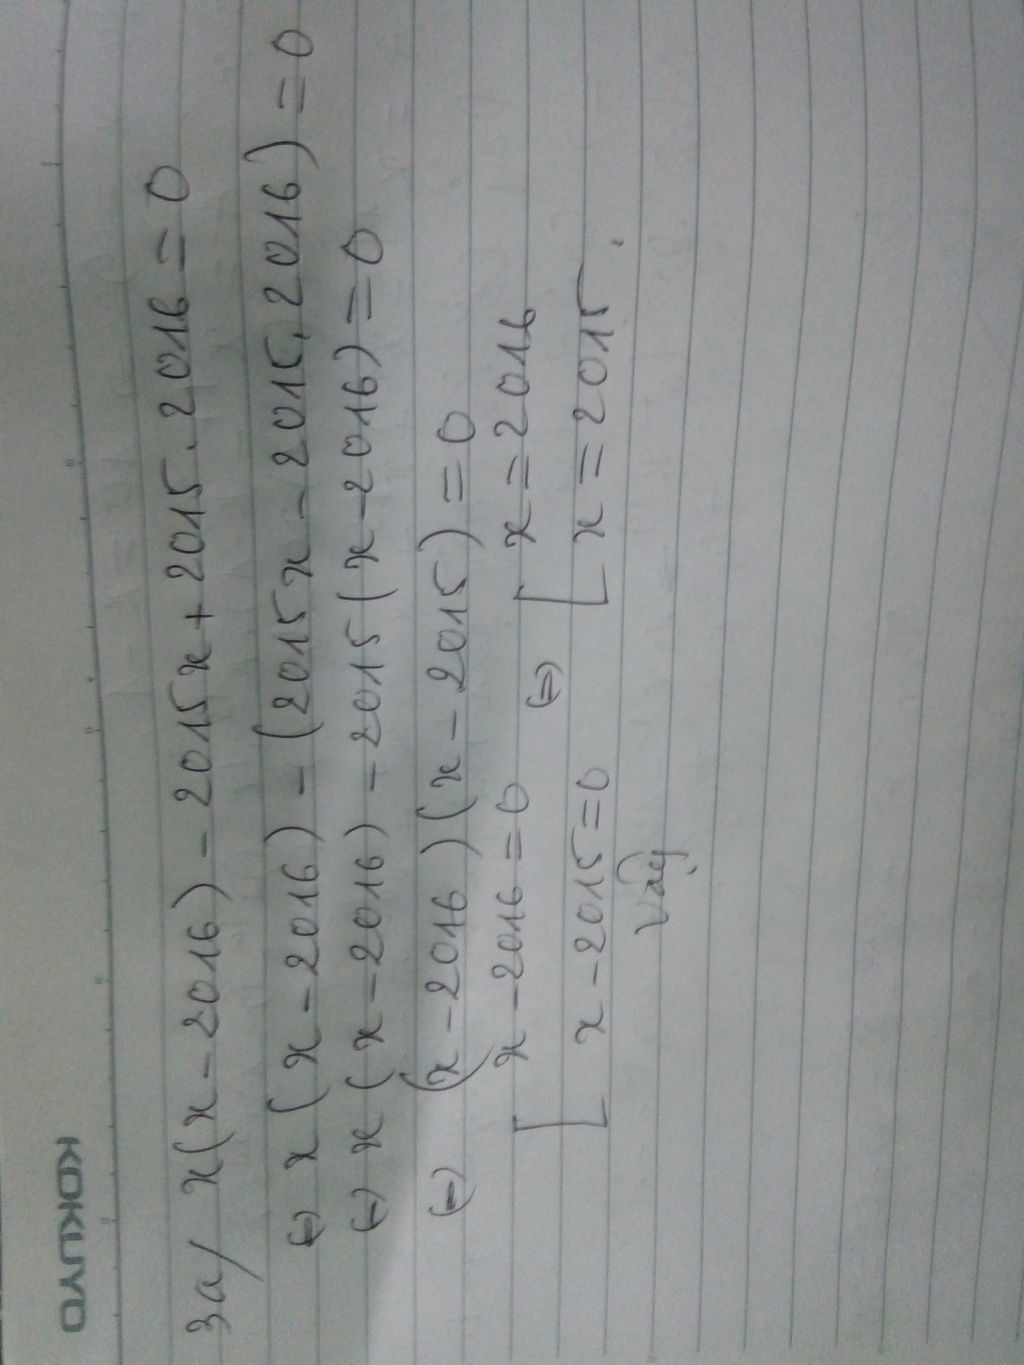 KOKUYO
3a/ x(x-2016) - 2015x + 2015.2016 = 0
(=) x(x-2016) - (2015x - 2015.2016) = 0
(=) x(x-2016) - 2015(x-2016) = 0
(=) (x-2016)(x-2015) = 0
[ x-2016=0 (=) [ x=2016
x-2015=0 x=2015.
Vậy